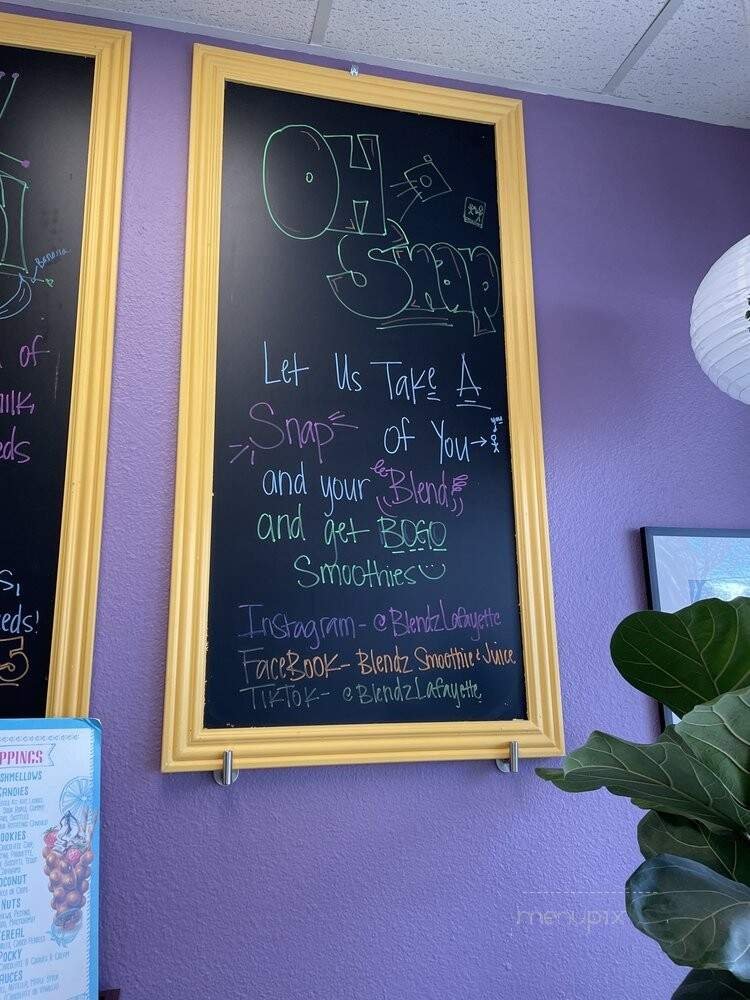 OH
Snap
Let Us Take A
Snap of You → you
and your Blend
and get BOGO
Smoothies
Instagram - @BlendzLafayette
FaceBook - Blendz Smoothie & Juice
TikTok - @BlendzLafayette
Banana
of
eds
eds!
PPINGS
SHMELLOWS
ANDIES
OOKIES
OCONUT
NUTS
EREAL
POCKY
AUCES
menupix